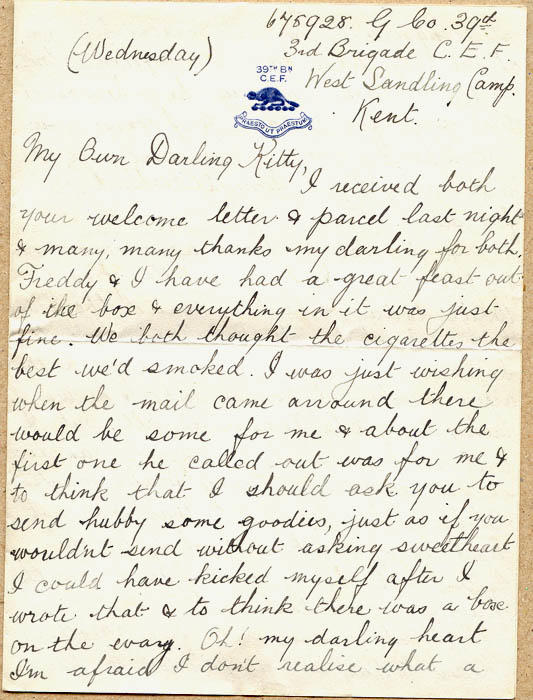 678928. G Co. 39th
(Wednesday)
3rd Brigade C. E. F.
39TH BN
C.E.F.
PRAESTO UT PRAESTUM
West Sandling Camp.
Kent.
My Own Darling Kitty,
I received both
your welcome letter & parcel last night
& many, many thanks my darling for both.
Freddy & I have had a great feast out
of the box & everything in it was just
fine. We both thought the cigarettes the
best we'd smoked. I was just wishing
when the mail came arround there
would be some for me & about the
first one he called out was for me &
to think that I should ask you to
send hubby some goodies, just as if you
wouldn't send without asking sweetheart
I could have kicked myself after I
wrote that & to think there was a box
on the way. Oh! my darling heart
I'm afraid I don't realise what a